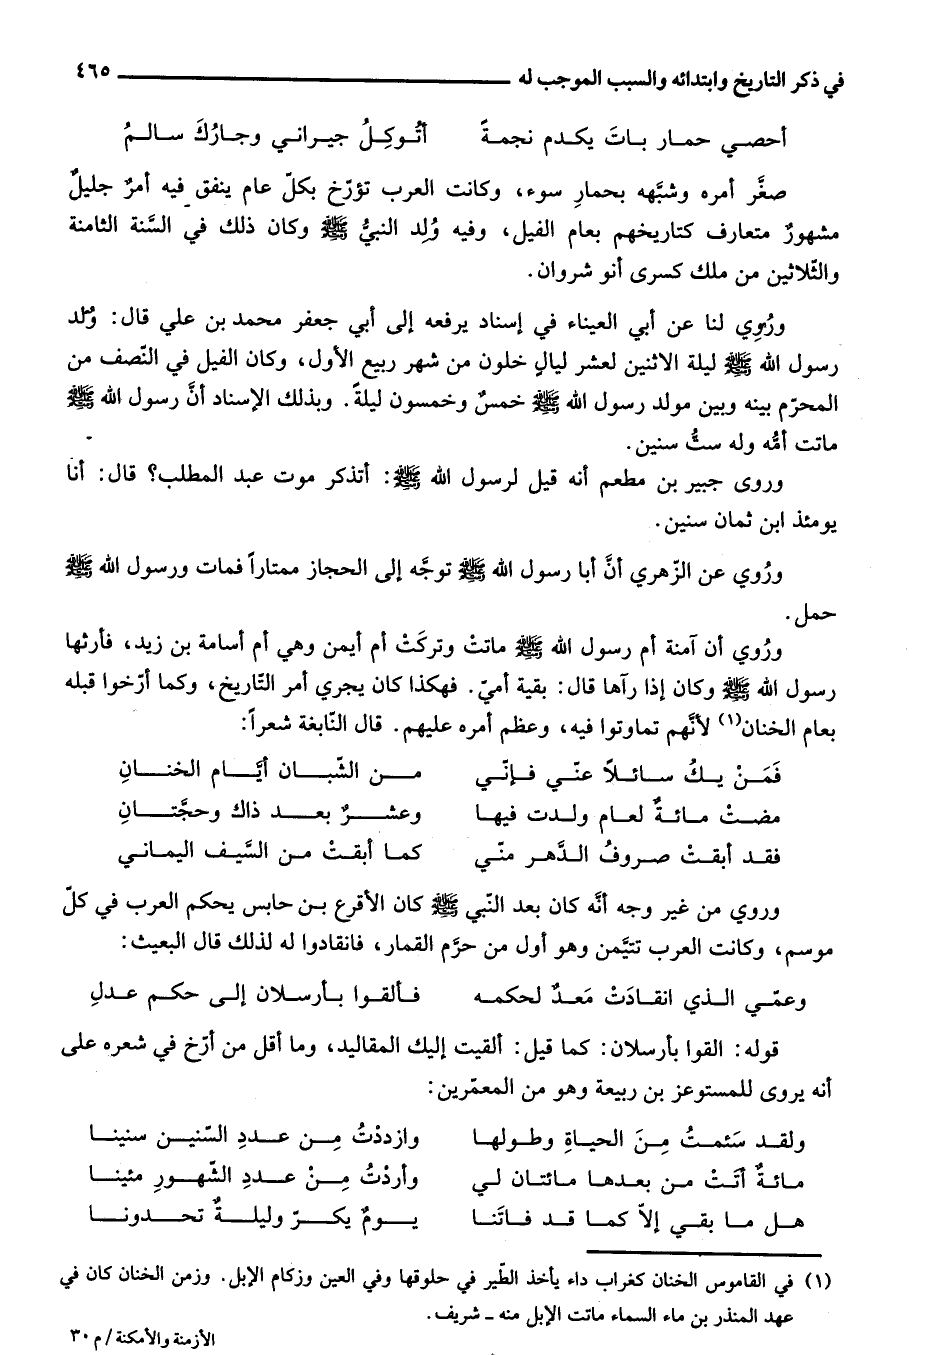 في ذكر التاريخ وابتدائه والسبب الموجب له ٤٦٥
أحصي حمار باتَ يكدم نجمةً أتُوكِلُ جيراني وجارُكَ سالمُ
صغَّر أمره وشبَّهه بحمارِ سوء، وكانت العرب تؤرّخ بكلّ عام ينفق فيه أمرٌ جليلٌ
مشهورٌ متعارف كتاريخهم بعام الفيل، وفيه وُلِد النبيُّ ﷺ وكان ذلك في السَّنة الثامنة
والثّلاثين من ملك كسرى أنو شروان.
ورُوِي لنا عن أبي العيناء في إسناد يرفعه إلى أبي جعفر محمد بن علي قال: وُلد
رسول الله ﷺ ليلة الاثنين لعشر ليالٍ خلون من شهر ربيع الأول، وكان الفيل في النّصف من
المحرّم بينه وبين مولد رسول الله ﷺ خمسٌ وخمسون ليلةً. وبذلك الإسناد أنَّ رسول الله ﷺ
ماتت أمُّه وله ستُّ سنين.
وروى جبير بن مطعم أنه قيل لرسول الله ﷺ: أتذكر موت عبد المطلب؟ قال: أنا
يومئذ ابن ثمان سنين.
ورُوي عن الزّهري أنَّ أبا رسول الله ﷺ توجَّه إلى الحجاز ممتاراً فمات ورسول الله ﷺ
حمل.
ورُوي أن آمنة أم رسول الله ﷺ ماتتْ وتركَتْ أم أيمن وهي أم أسامة بن زيد، فأرثها
رسول الله ﷺ وكان إذا رآها قال: بقية أميّ. فهكذا كان يجري أمر التّاريخ، وكما أرّخوا قبله
بعام الخنان(١) لأنَّهم تماوتوا فيه، وعظم أمره عليهم. قال النّابغة شعراً:
فَمَنْ يـكُ سـائـلاً عنّـي فـإنّـي مـن الشّبـان أيَّـام الخنـانِ
مضـتْ مـائـةٌ لعـام ولـدت فيهـا وعشـرٌ بعـد ذاك وحجَّتـانِ
فقـد أبقـتْ صـروفُ الـدَّهـر منّـي كمـا أبقـتْ مـن السَّيـف اليمـانـي
وروي من غير وجه أنَّه كان بعد النّبي ﷺ كان الأقرع بن حابس يحكم العرب في كلّ
موسم، وكانت العرب تتيَّمن وهو أول من حرَّم القمار، فانقادوا له لذلك قال البعيث:
وعمّـي الـذي انقـادَتْ مَعـدٌ لحكمـه فـألقـوا بـأرسـلان إلـى حكـم عـدلِ
قوله: القوا بأرسلان: كما قيل: ألقيت إليك المقاليد، وما أقل من أرّخ في شعره على
أنه يروى للمستوعز بن ربيعة وهو من المعمّرين:
ولقـد سَئمـتُ مِـنَ الحيـاةِ وطـولهـا وازددْتُ مِـن عـددِ السّنيـن سنينـا
مـائـةٌ أتَـتْ مـن بعـدهـا مـائتـان لـي وأردْتُ مِـنْ عـددِ الشّهـورِ مئينـا
هـل مـا بقـي إلاّ كمـا قـد فـاتَنـا يـومٌ يكـرّ وليلـةٌ تحـدونـا
(١) في القاموس الخنان كغراب داء يأخذ الطّير في حلوقها وفي العين وزكام الإبل. وزمن الخنان كان في
عهد المنذر بن ماء السماء ماتت الإبل منه ـ شريف.
الأزمنة والأمكنة/ م ٣٠